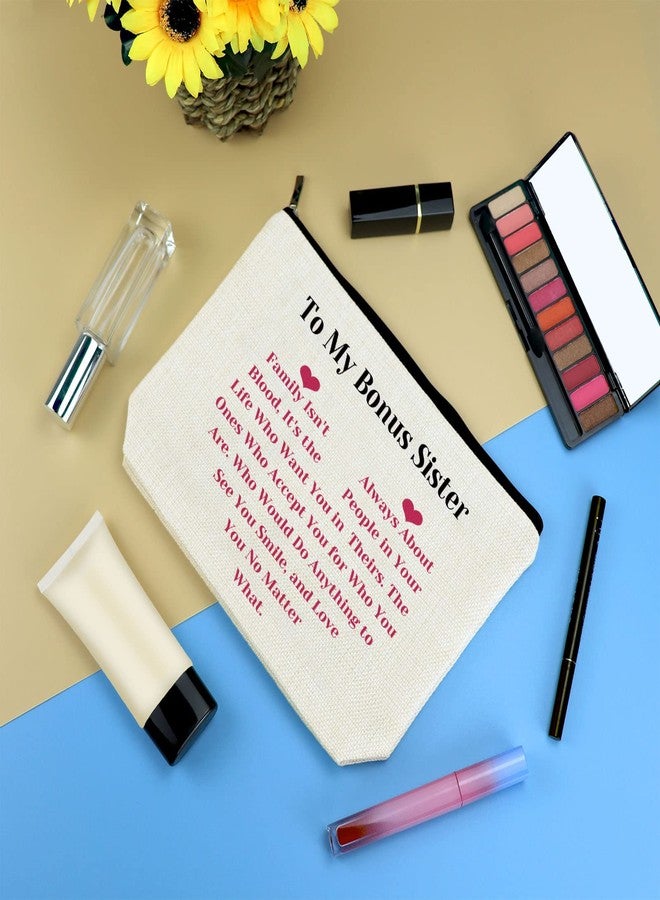 To My Bonus Sister
Family Isn't Always About
Blood. It's the People in Your
Life Who Want You In Theirs. The
Ones Who Accept You for Who You
Are. Who Would Do Anything to
See You Smile, and Love
You No Matter
What.